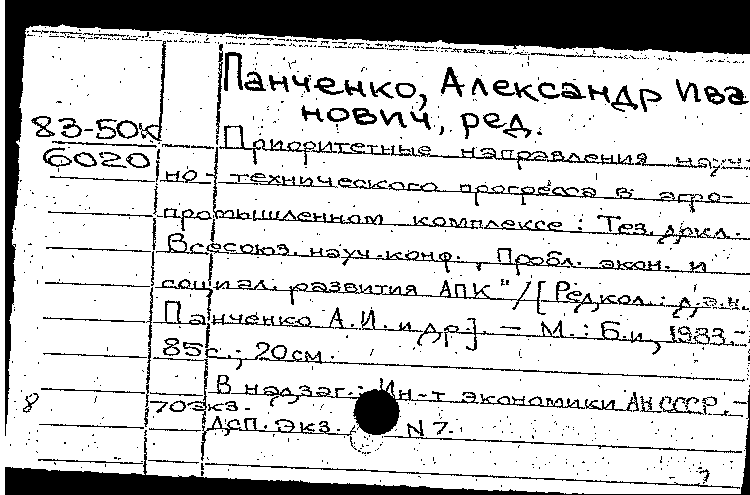 Панченко, Александр Ива
нович, ред.
83-50к
6020
Приоритетные направления науч-
но-технического прогресса в агро-
промышленном комплексе: Тез. докл.
Всесоюз. науч. конф. „Пробл. экон. и
социал. развития АПК" /[Редкол.: д.э.н.
Панченко А.И. и др]. - М.: Б.и, 1983.-
85с.; 20см.
В надзаг.: Ин-т экономики АН СССР. -
8 70экз.
Дсп. экз. N 7.